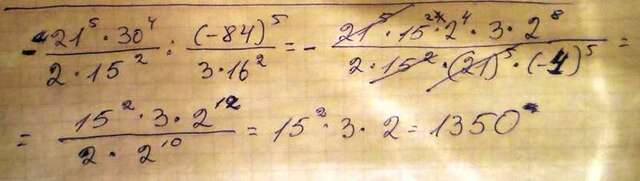 - 21^5 · 30^4 / 2 · 15^2 : (-84)^5 / 3 · 16^2 = - 21^5 · 15^4 · 2^4 · 3 · 2^8 / 2 · 15^2 · (21)^5 · (-4)^5 =
= 15^2 · 3 · 2^12 / 2 · 2^10 = 15^2 · 3 · 2 = 1350